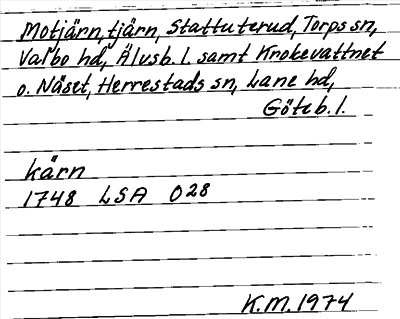 Motjärn, tjärn, Stattuterud, Torps sn,
Valbo hd, Älvsb. l. samt Krokevattnet
o. Näset, Herrestads sn, Lane hd,
Göteb. l.
kärn
1748 LSA O 28
K.M. 1974